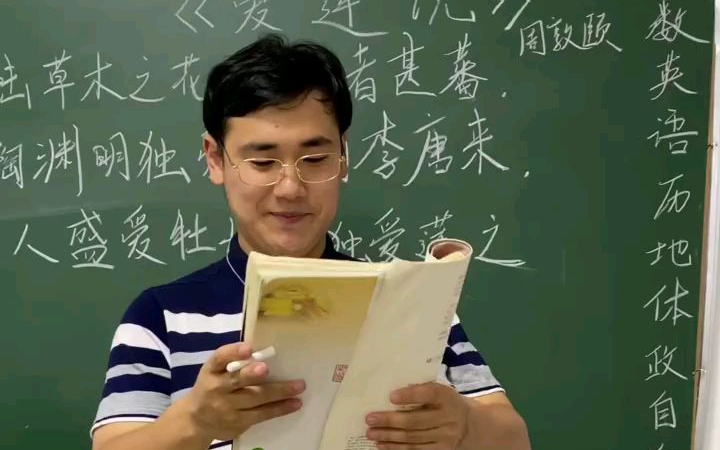 《爱莲说》
周敦颐
陆草木之花 者甚蕃.
陶渊明独 李唐来,
人盛爱牡 独爱莲之
数英语历地体政自